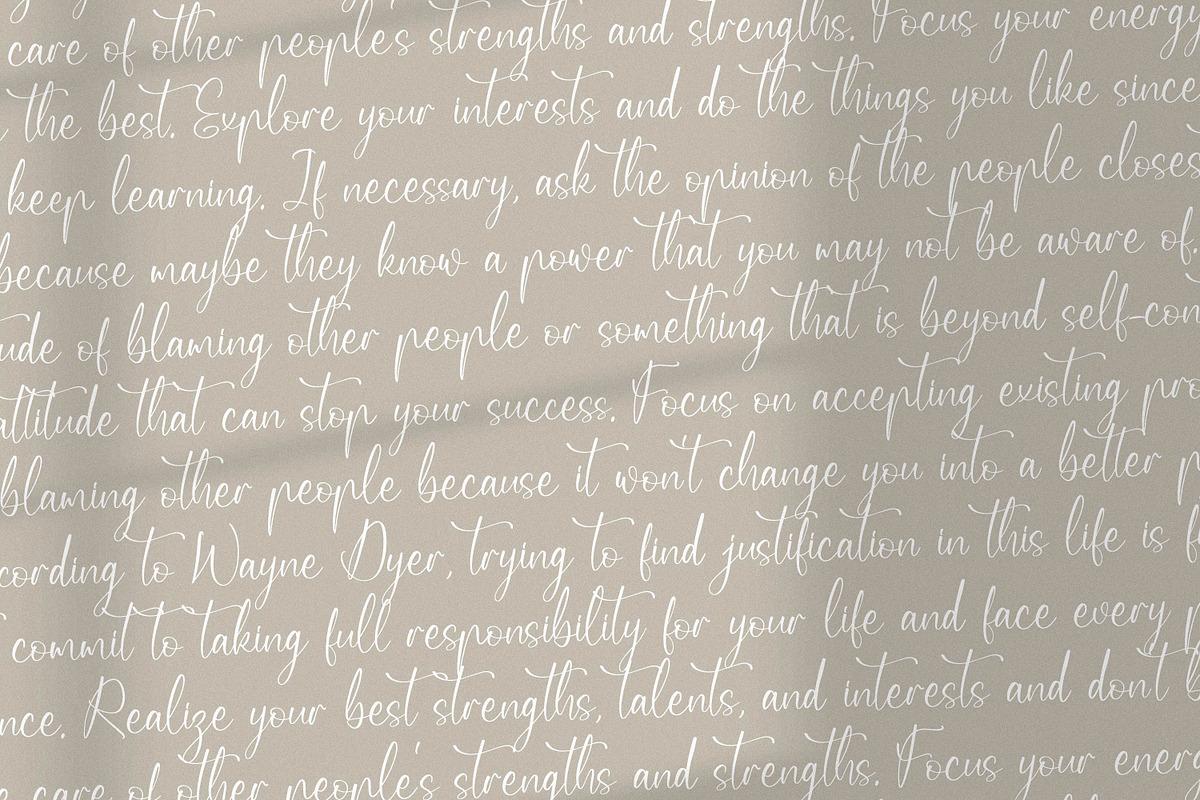 care of other people's strengths and strengths. Focus your energy
the best. Explore your interests and do the things you like since
keep learning. If necessary, ask the opinion of the people closes
because maybe they know a power that you may not be aware of
ude of blaming other people or something that is beyond self-con
attitude that can stop your success. Focus on accepting existing pro
blaming other people because it won't change you into a better p
cording to Wayne Dyer, trying to find justification in this life is f
commit to taking full responsibility for your life and face every p
nce. Realize your best strengths, talents, and interests and don't b
care of other people's strengths and strengths. Focus your energ